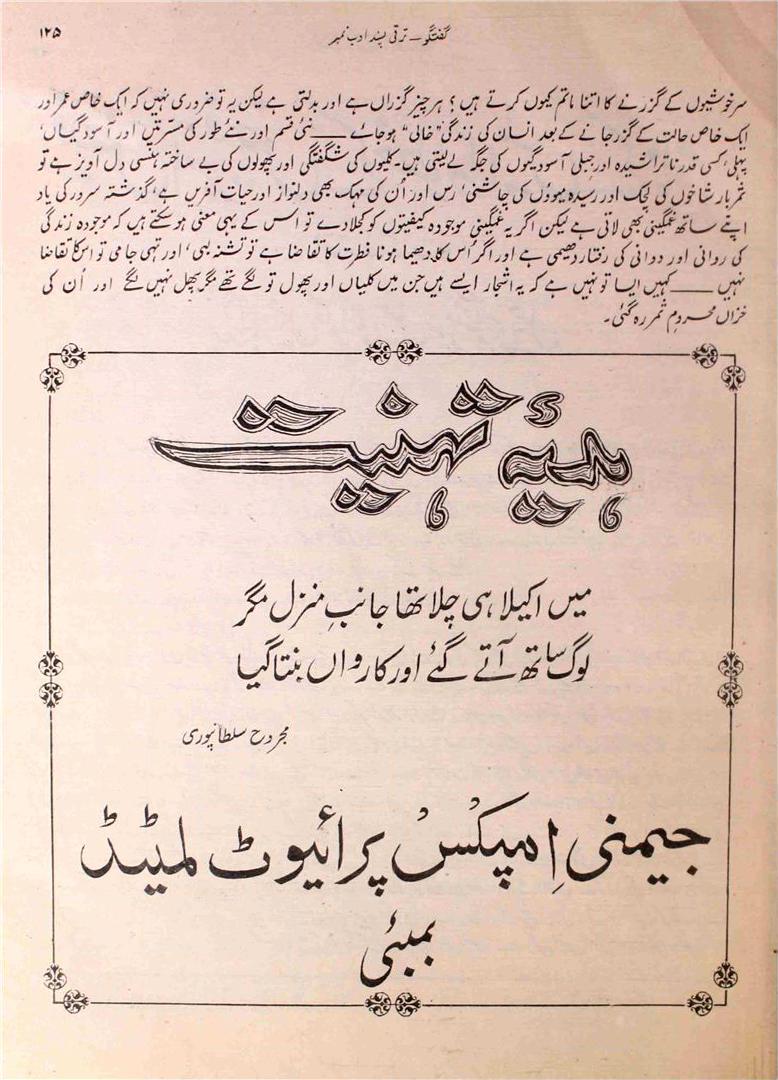 گفتگو — ترقی پسند ادب نمبر
۱۲۵
سرخوشیوں کے گزرنے کا اتنا ماتم کیوں کرتے ہیں؟ ہر چیز گزراں ہے اور بدلتی ہے لیکن یہ تو ضروری نہیں کہ ایک خاص عمر اور
ایک خاص حالت کے گزر جانے کے بعد انسان کی زندگی "خالی" ہو جائے — نئی قسم اور نئے طور کی مسرتیں اور آسودگیاں،
پہلی، کسی قدر ناتراشیدہ اور جبلی آسودگیوں کی جگہ لے لیتی ہیں۔ کلیوں کی شگفتگی اور پھولوں کی بے ساختہ ہنسی دل آویز ہے تو
ثمر بار شاخوں کی لچک اور رسیدہ میووں کی چاشنی، رس اور اُن کی مہک بھی دلنواز اور حیات آفریں ہے، گذشتہ سرور کی یاد
اپنے ساتھ غمگینی بھی لاتی ہے لیکن اگر یہ غمگینی موجودہ کیفیتوں کو کجلا دے تو اس کے یہی معنی ہو سکتے ہیں کہ موجودہ زندگی
کی روانی اور دوانی کی رفتار دھیمی ہے اور اگر اُس کا دھیما ہونا فطرت کا تقاضا ہے تو تشنہ لبی، اور تہی جامی تو اسکا تقاضا
نہیں — کہیں ایسا تو نہیں ہے کہ یہ اشجار ایسے ہیں جن میں کلیاں اور پھول تو لگے تھے مگر پھل نہیں لگے اور اُن کی
خزاں محرومِ ثمر رہ گئی۔
ہدیۂ تہنیت
میں اکیلا ہی چلا تھا جانبِ منزل مگر
لوگ ساتھ آتے گئے اور کارواں بنتا گیا
مجروح سلطانپوری
جیمنی اِمپکسْ پرائیوٹ لمیٹڈ
بمبئی